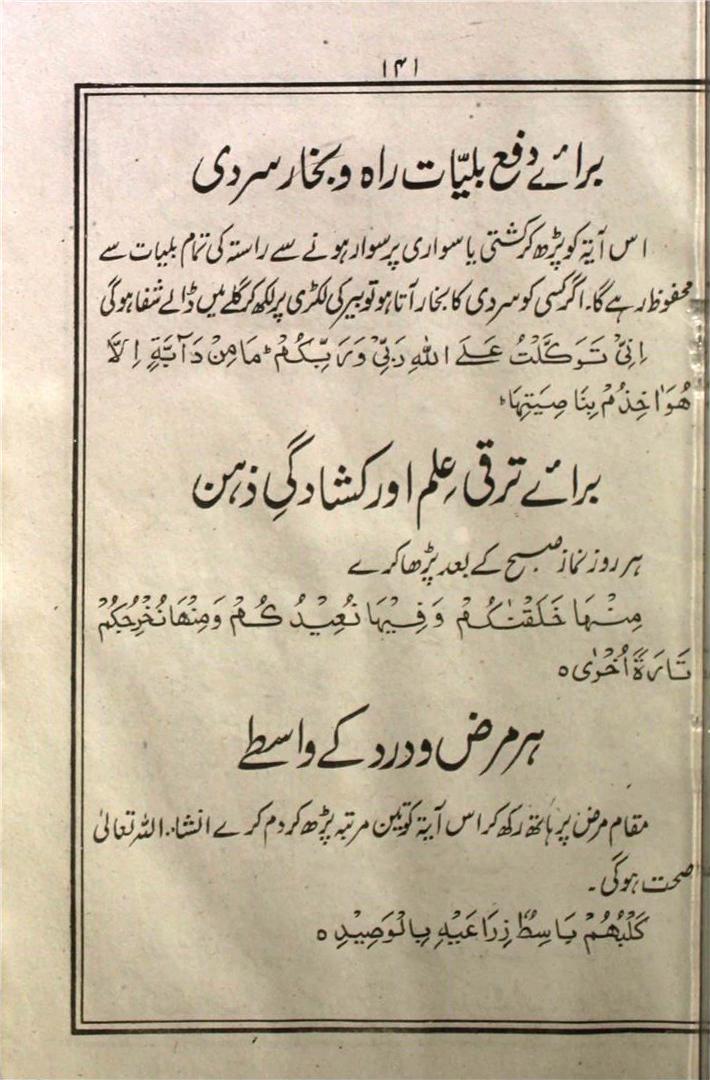 ۱۴۱
برائے دفع بلیّات راہ و بخار سردی
اس آیۃ کو پڑھ کر کشتی یا سواری پر سوار ہونے سے راستہ کی تمام بلیات سے
محفوظ رہے گا۔ اگر کسی کو سردی کا بخار آتا ہو تو بیر کی لکڑی پر لکھ کر گلے میں ڈالے شفا ہوگی
اِنِّیْ تَوَکَّلْتُ عَلَے اللہِ رَبِّیْ وَرَبِّکُمْ ؕ مَا مِنْ دَآبَّةٍ اِلَّا
ھُوَ اٰخِذٌمْ بِنَاصِیَتِہَا ؕ
برائے ترقی عِلم اور کشادگیِ ذہن
ہر روز نماز صبح کے بعد پڑھا کرے
مِنْہَا خَلَقْنٰکُمْ وَفِیْہَا نُعِیْدُ کُمْ وَمِنْھَا نُخْرِجُکُمْ
تَارَةً اُخْرٰی ہ
ہر مرض و درد کے واسطے
مقام مرض پر ہاتھ رکھ کر اس آیۃ کو تین مرتبہ پڑھ کر دم کرے انشاء اللہ تعالیٰ
صحت ہوگی۔
کَلْبُھُمْ بَاسِطٌ زِرَاعَیْہِ بِالْوَصِیْدِ ہ